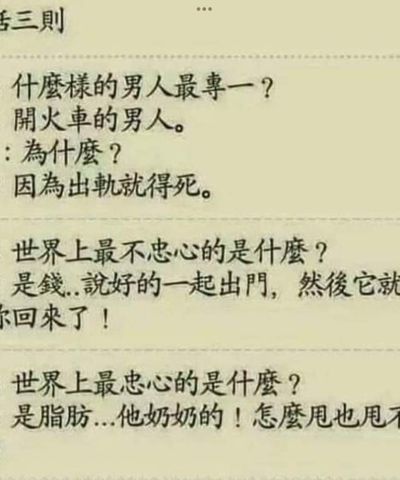 話三則
什麼樣的男人最專一？
開火車的男人。
：為什麼？
因為出軌就得死。
世界上最不忠心的是什麼？
是錢..說好的一起出門，然後它就
你回來了！
世界上最忠心的是什麼？
是脂肪...他奶奶的！怎麼甩也甩不